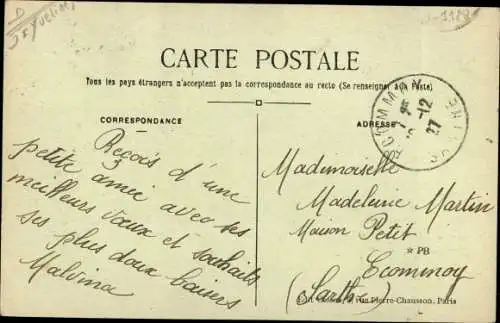 D
Yvelines
CARTE POSTALE
Tous les pays étrangers n'acceptent pas la correspondance au recto (Se renseigner à la Poste).
CORRESPONDANCE
ADRESSE
Reçois d'une
petite amie avec ses
meilleurs vœux et souhaits
ses plus doux baisers
Malvina
Mademoiselle
Madeleine Martin
Maison Petit
* PB
Ecommoy
(Sarthe)
rue Pierre-Chausson, Paris
ECOMMOY
12